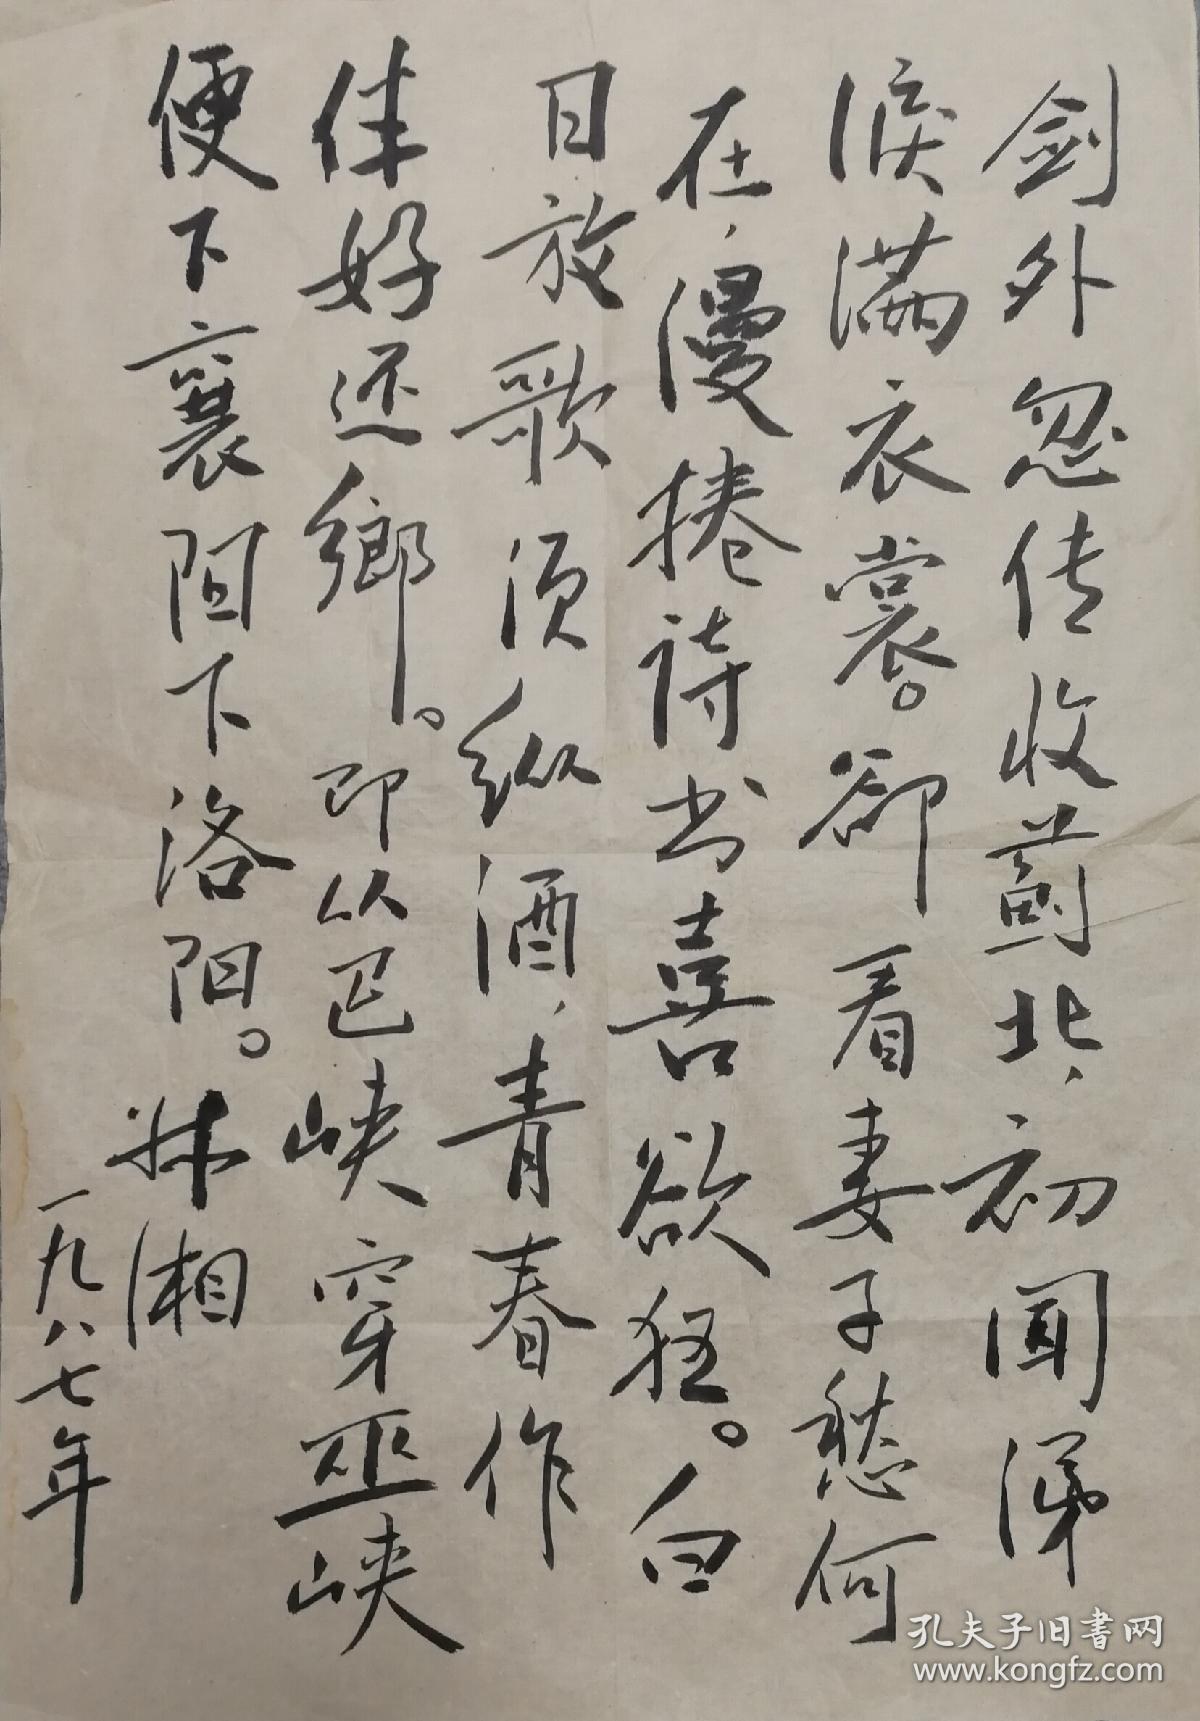 剑外忽传收蓟北，初闻涕
淚满衣裳。卻看妻子愁何
在，漫捲诗书喜欲狂。白
日放歌须纵酒，青春作
伴好还鄉。即从巴峡穿巫峡
便下襄阳下洛阳。林湘
一九八七年
孔夫子旧書网
www.kongfz.com